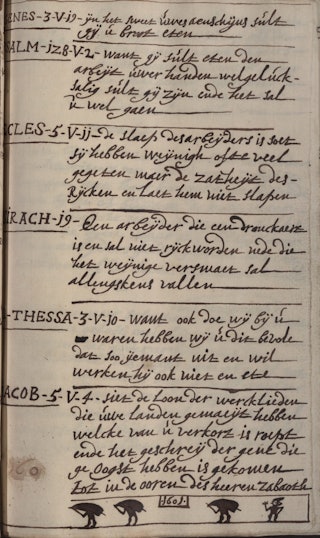 ENES-3-V-19- ijn het sweet ŭwes aenschijns sŭlt
gij ŭ broot eten
ALM-128-V-2- want gij sŭlt eten den
arbeijt ŭwer handen welgelŭck-
salig sŭlt gij zijn ende het sal
ŭ wel gaen
CLES-5-V-11- de slaep des arbeijders is soet
sij hebben weijnigh ofte veel
gegeten maer de zatheijt des-
Rijcken en laet hem niet slapen
IRACH-19- Een arbeijder die een dronckaert
is en sal niet rijck worden ende die
het weijnige versmaet sal
allengskens vallen
-THESSA-3-V-10- want ook doe wij bij ŭ
waren hebben wij ŭ dit bevole
dat soo ijemant niet en wil
werken hij ook niet en ete
ACOB-5-V-4- siet de loon der werclieden
die ŭwe landen gemaeijt hebben
welcke van ŭ verkort is roept
ende het geschreij der gene die
ge oogst hebben is gekomen
tot in de ooren des heeren zabaoth